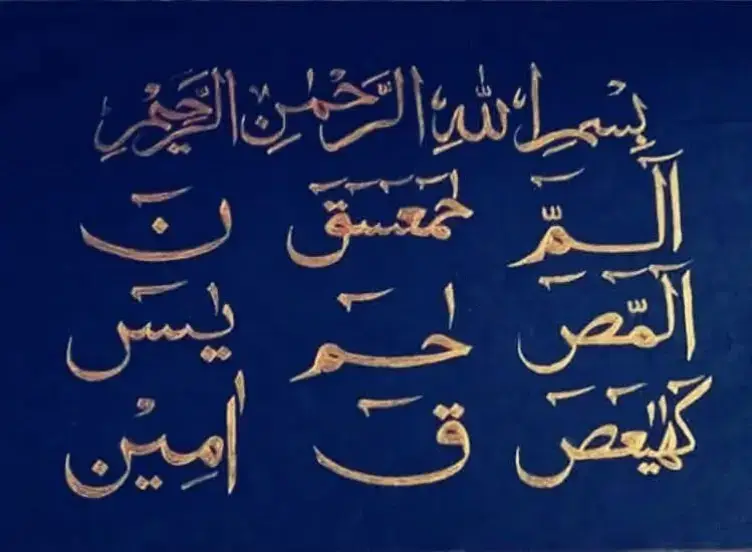 بِسْمِ اللهِ الرَّحْمٰنِ الرَّحِيْمِ
الٓمّٓ حٰمٓعٓسٓقٓ نٓ
الٓمّٓصٓ حٰمٓ يٰسٓ
كٓهٰيٰعٓصٓ قٓ اٰمِيْن